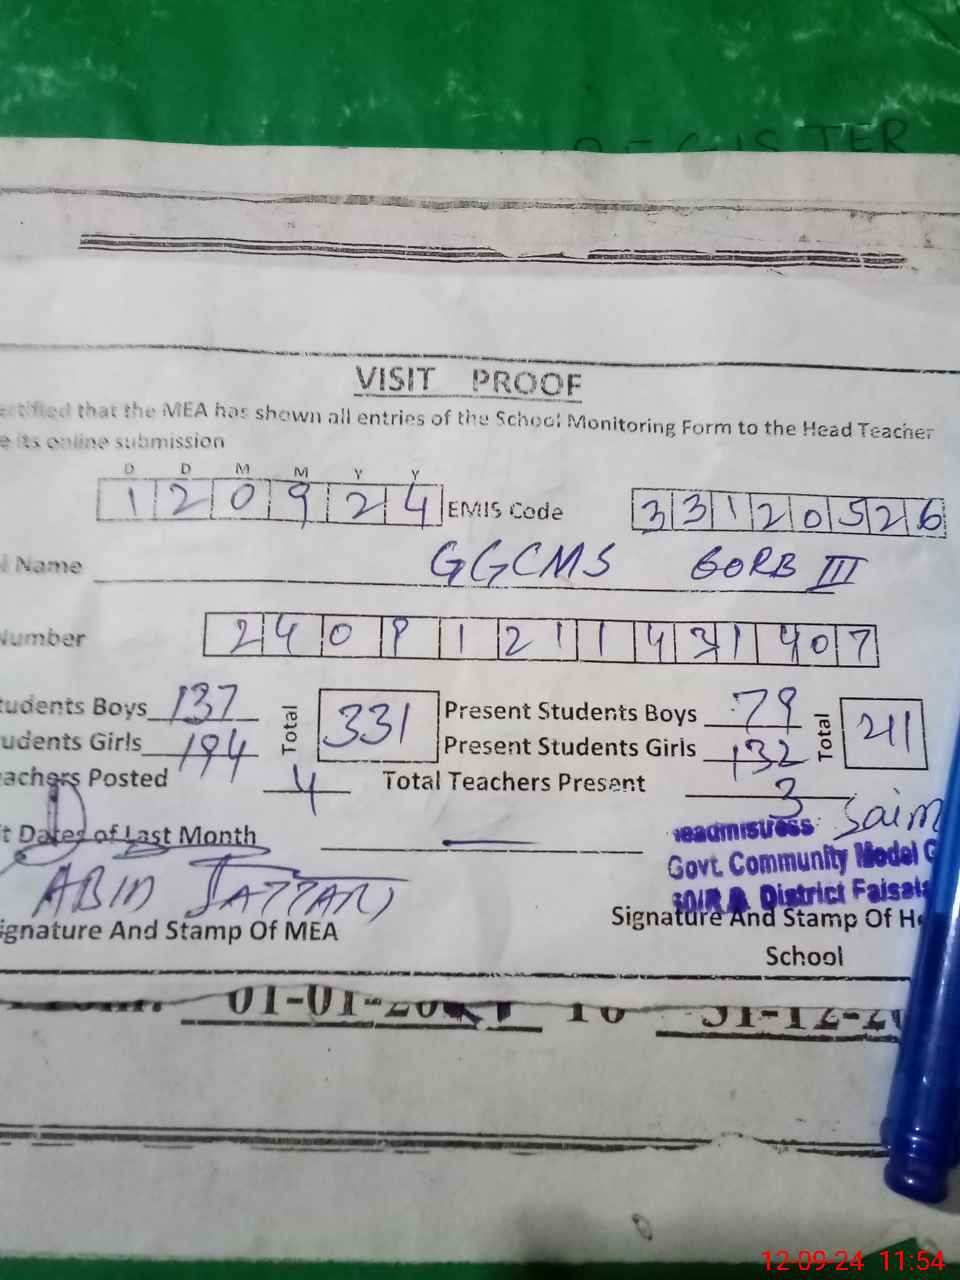 REGISTER
VISIT PROOF
ertified that the MEA has shown all entries of the School Monitoring Form to the Head Teacher
e its online submission
D D M M Y Y
1 2 0 9 2 4 EMIS Code 3 3 1 2 0 5 2 6
l Name GGCMS 60RB III
Number 2 4 0 9 1 2 1 1 4 3 1 4 0 7
tudents Boys 137 Total 331 Present Students Boys 79 Total 211
udents Girls 194 Present Students Girls 132
eachers Posted 4 Total Teachers Present 3
t Dates of Last Month
Headmistress Saim
Govt. Community Model G
District Faisala
ABID SATTAR
ignature And Stamp Of MEA
Signature And Stamp Of He
School
01-01-20 To 31-12-20
12-09-24 11:54